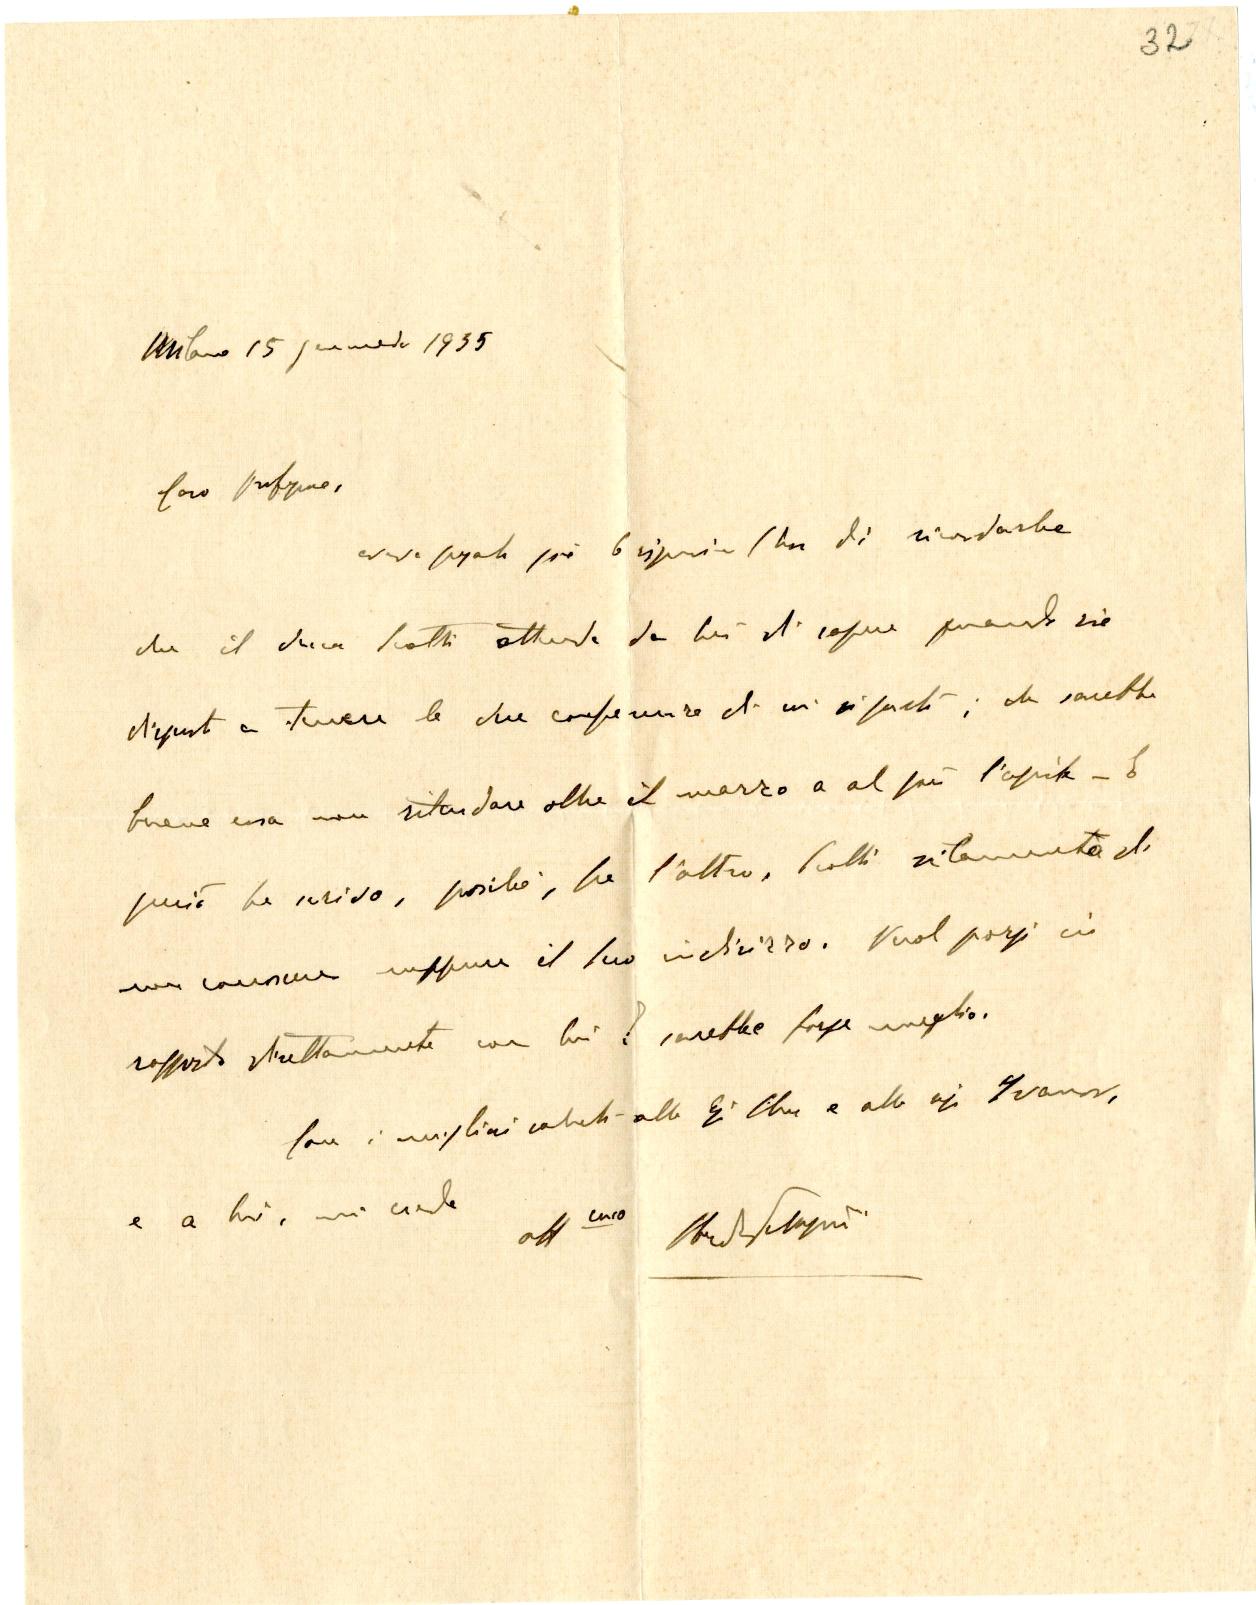 32
Milano 15 gennaio 1935
Caro professore,
avevo pregato già la signorina Ottar di ricordarle
che il duca Scotti attende da Lei di sapere quando sia
disposto a tenere le due conferenze di cui si parlò; che sarebbe
buona cosa non ritardare oltre il marzo o al più l'aprile – E
quindi Le scrivo, poichè, fra l'altro, Scotti si lamenta di
non conoscere neppure il Suo indirizzo. Vuol porsi in
rapporto direttamente con lui? sarebbe forse meglio.
Con i migliori saluti alla Sig. e alla sig. Ivanov,
e a Lei, mi creda
aff.mo